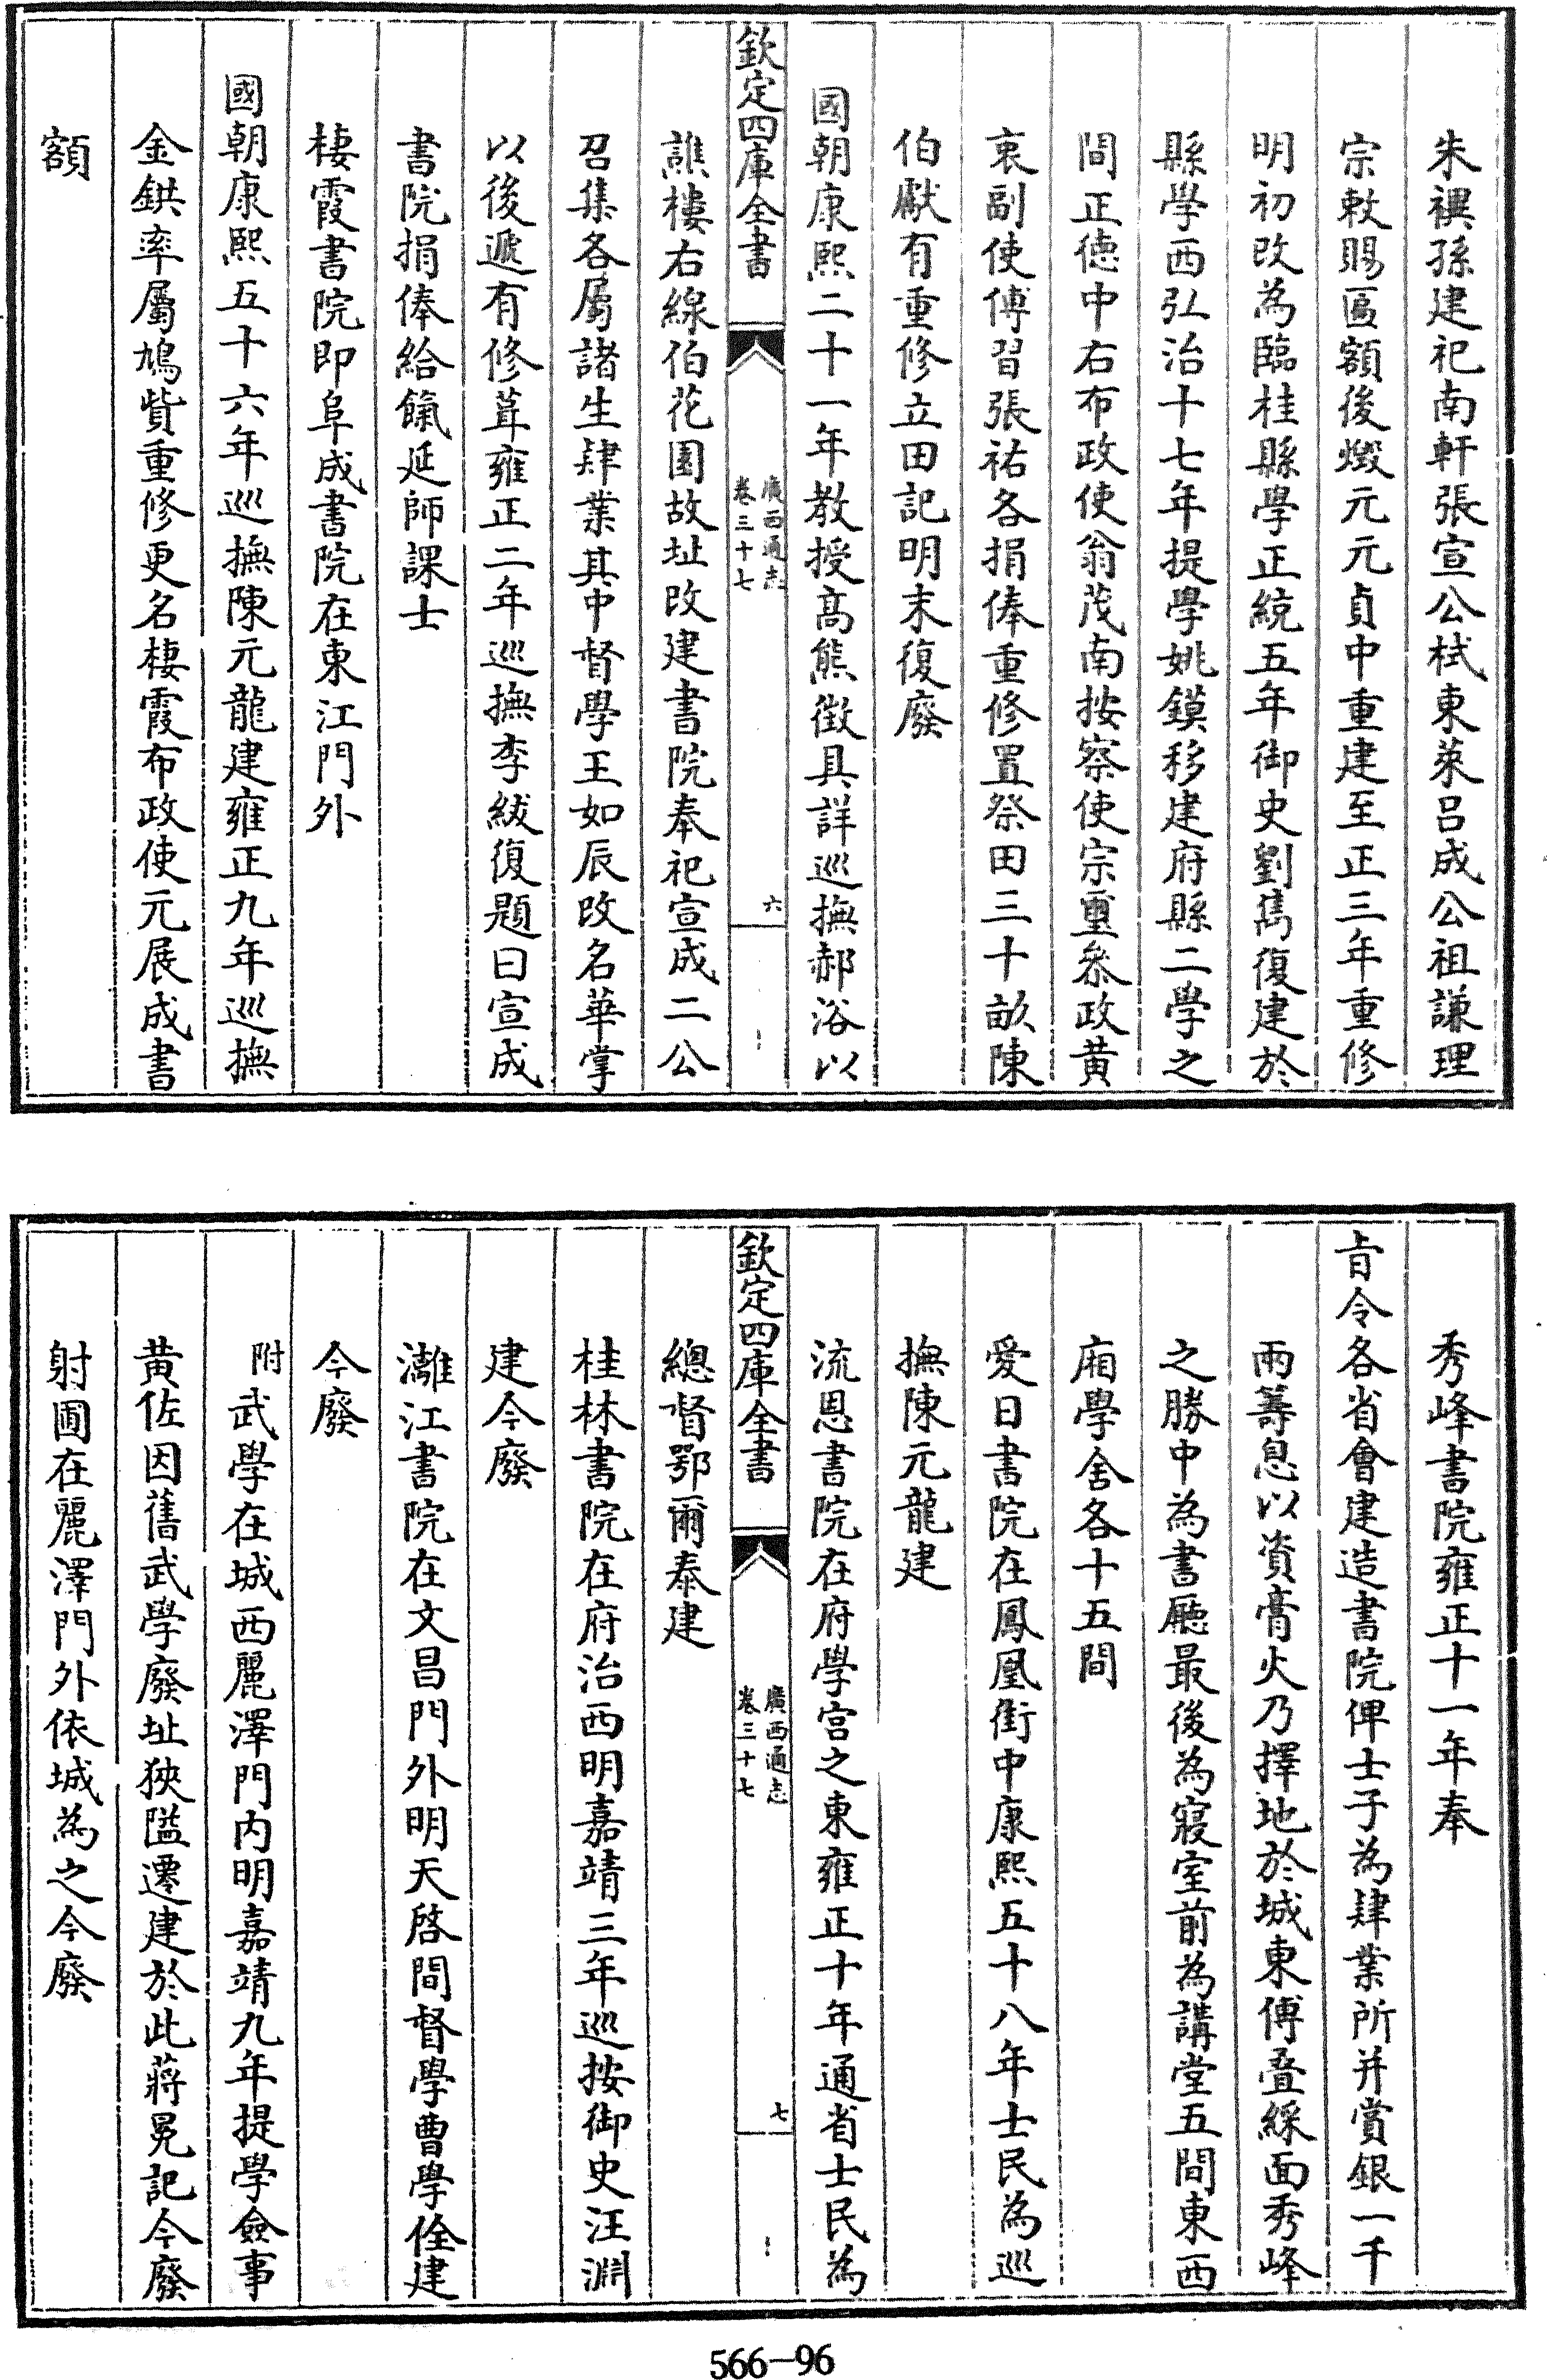 朱禩孫建祀南軒張宣公栻東萊吕成公祖謙理
宗敕賜匾額後燬元元貞中重建至正三年重修
明初改為臨桂縣學正統五年御史劉雋復建於
縣學西弘治十七年提學姚鏌移建府縣二學之
間正德中右布政使翁茂南按察使宗璽叅政黄
衷副使傅習張祐各捐俸重修置祭田三十畝陳
伯獻有重修立田記明末復廢
國朝康熙二十一年教授高熊徴具詳巡撫郝浴以
欽定四庫全書
廣西通志
卷三十七
六
譙樓右線伯花園故址改建書院奉祀宣成二公
召集各屬諸生肄業其中督學王如辰改名華掌
以後遞有修葺雍正二年巡撫李紱復題曰宣成
書院捐俸給餼延師課士
棲霞書院即阜成書院在東江門外
國朝康熙五十六年巡撫陳元龍建雍正九年巡撫
金鉷率屬鳩貲重修更名棲霞布政使元展成書
額
秀峰書院雍正十一年奉
㫖令各省會建造書院俾士子為肄業所并賞銀一千
兩籌息以資膏火乃擇地於城東傅疊綵面秀峰
之勝中為書廳最後為寢室前為講堂五間東西
廂學舍各十五間
愛日書院在鳳凰街中康熙五十八年士民為巡
撫陳元龍建
流恩書院在府學宫之東雍正十年通省士民為
欽定四庫全書
廣西通志
卷三十七
七
總督鄂爾泰建
桂林書院在府治西明嘉靖三年巡按御史汪淵
建今廢
灕江書院在文昌門外明天啓間督學曹學佺建
今廢
附武學在城西麗澤門内明嘉靖九年提學僉事
黄佐因舊武學廢址狹隘遷建於此蔣冕記今廢
射圃在麗澤門外依城為之今廢
566—96